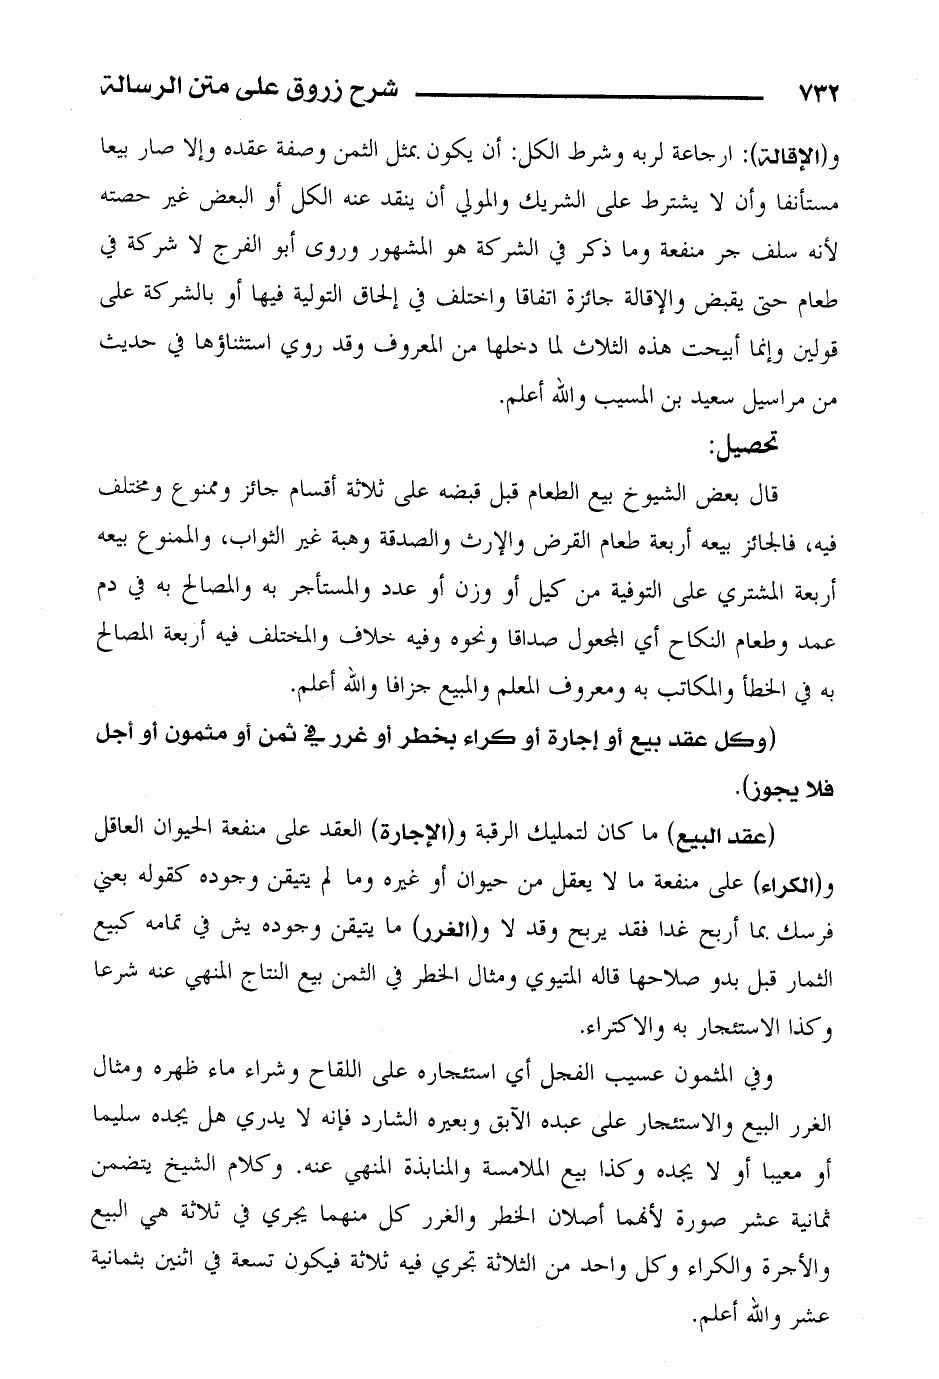 ٧٣٢ شرح زروق على متن الرسالة
و(الإقالة): ارجاعة لربه وشرط الكل: أن يكون بمثل الثمن وصفة عقده وإلا صار بيعا
مستأنفا وأن لا يشترط على الشريك والمولي أن ينقد عنه الكل أو البعض غير حصته
لأنه سلف جر منفعة وما ذكر في الشركة هو المشهور وروى أبو الفرج لا شركة في
طعام حتى يقبض والإقالة جائزة اتفاقا واختلف في إلحاق التولية فيها أو بالشركة على
قولين وإنما أبيحت هذه الثلاث لما دخلها من المعروف وقد روي استثناؤها في حديث
من مراسيل سعيد بن المسيب والله أعلم.
تحصيل:
قال بعض الشيوخ بيع الطعام قبل قبضه على ثلاثة أقسام جائز وممنوع ومختلف
فيه، فالجائز بيعه أربعة طعام القرض والإرث والصدقة وهبة غير الثواب، والممنوع بيعه
أربعة المشتري على التوفية من كيل أو وزن أو عدد والمستأجر به والمصالح به في دم
عمد وطعام النكاح أي المجعول صداقا ونحوه وفيه خلاف والمختلف فيه أربعة المصالح
به في الخطأ والمكاتب به ومعروف المعلم والمبيع جزافا والله أعلم.
(وكل عقد بيع أو إجارة أو كراء بخطر أو غرر في ثمن أو مثمون أو أجل
فلا يجوز).
(عقد البيع) ما كان لتمليك الرقبة و(الإجارة) العقد على منفعة الحيوان العاقل
و(الكراء) على منفعة ما لا يعقل من حيوان أو غيره وما لم يتيقن وجوده كقوله بعني
فرسك بما أربح غدا فقد يربح وقد لا و(الغرر) ما يتيقن وجوده يش في تمامه كبيع
الثمار قبل بدو صلاحها قاله المتيوي ومثال الخطر في الثمن بيع النتاج المنهي عنه شرعا
وكذا الاستئجار به والاكتراء.
وفي المثمون عسيب الفحل أي استئجاره على اللقاح وشراء ماء ظهره ومثال
الغرر البيع والاستئجار على عبده الآبق وبعيره الشارد فإنه لا يدري هل يجده سليما
أو معيبا أو لا يجده وكذا بيع الملامسة والمنابذة المنهي عنه. وكلام الشيخ يتضمن
ثمانية عشر صورة لأنهما أصلان الخطر والغرر كل منهما يجري في ثلاثة هي البيع
والأجرة والكراء وكل واحد من الثلاثة تجري فيه ثلاثة فيكون تسعة في اثنين بثمانية
عشر والله أعلم.